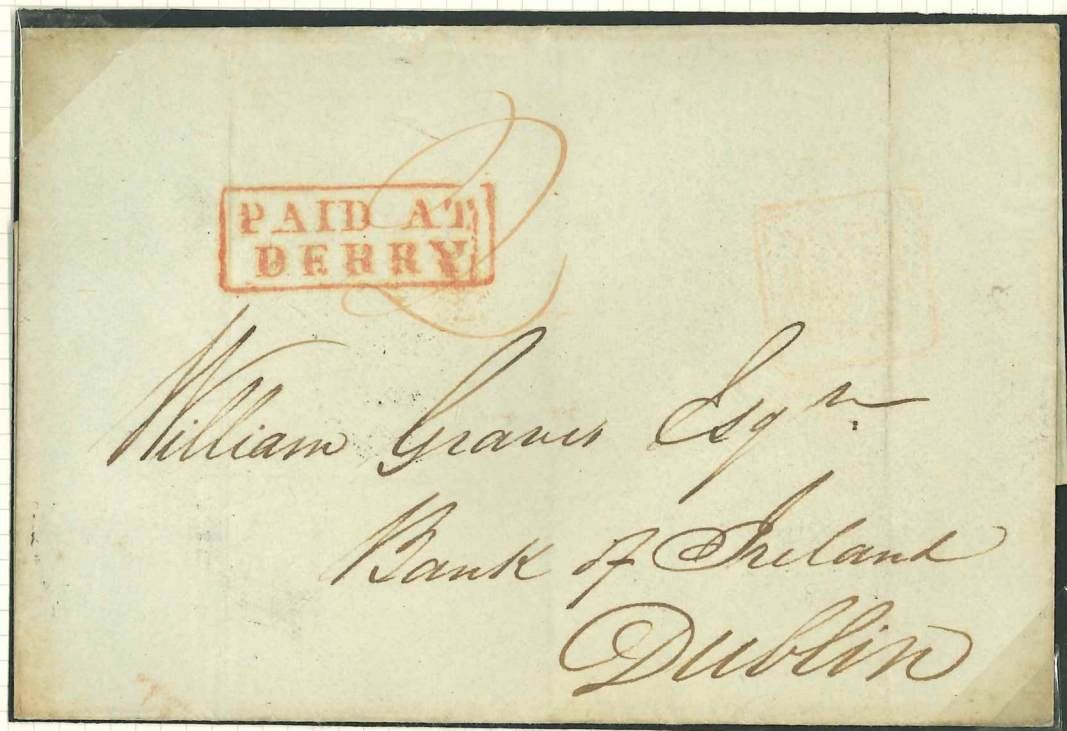 PAID AT
DERRY
2
William Graves Esqr
Bank of Ireland
Dublin